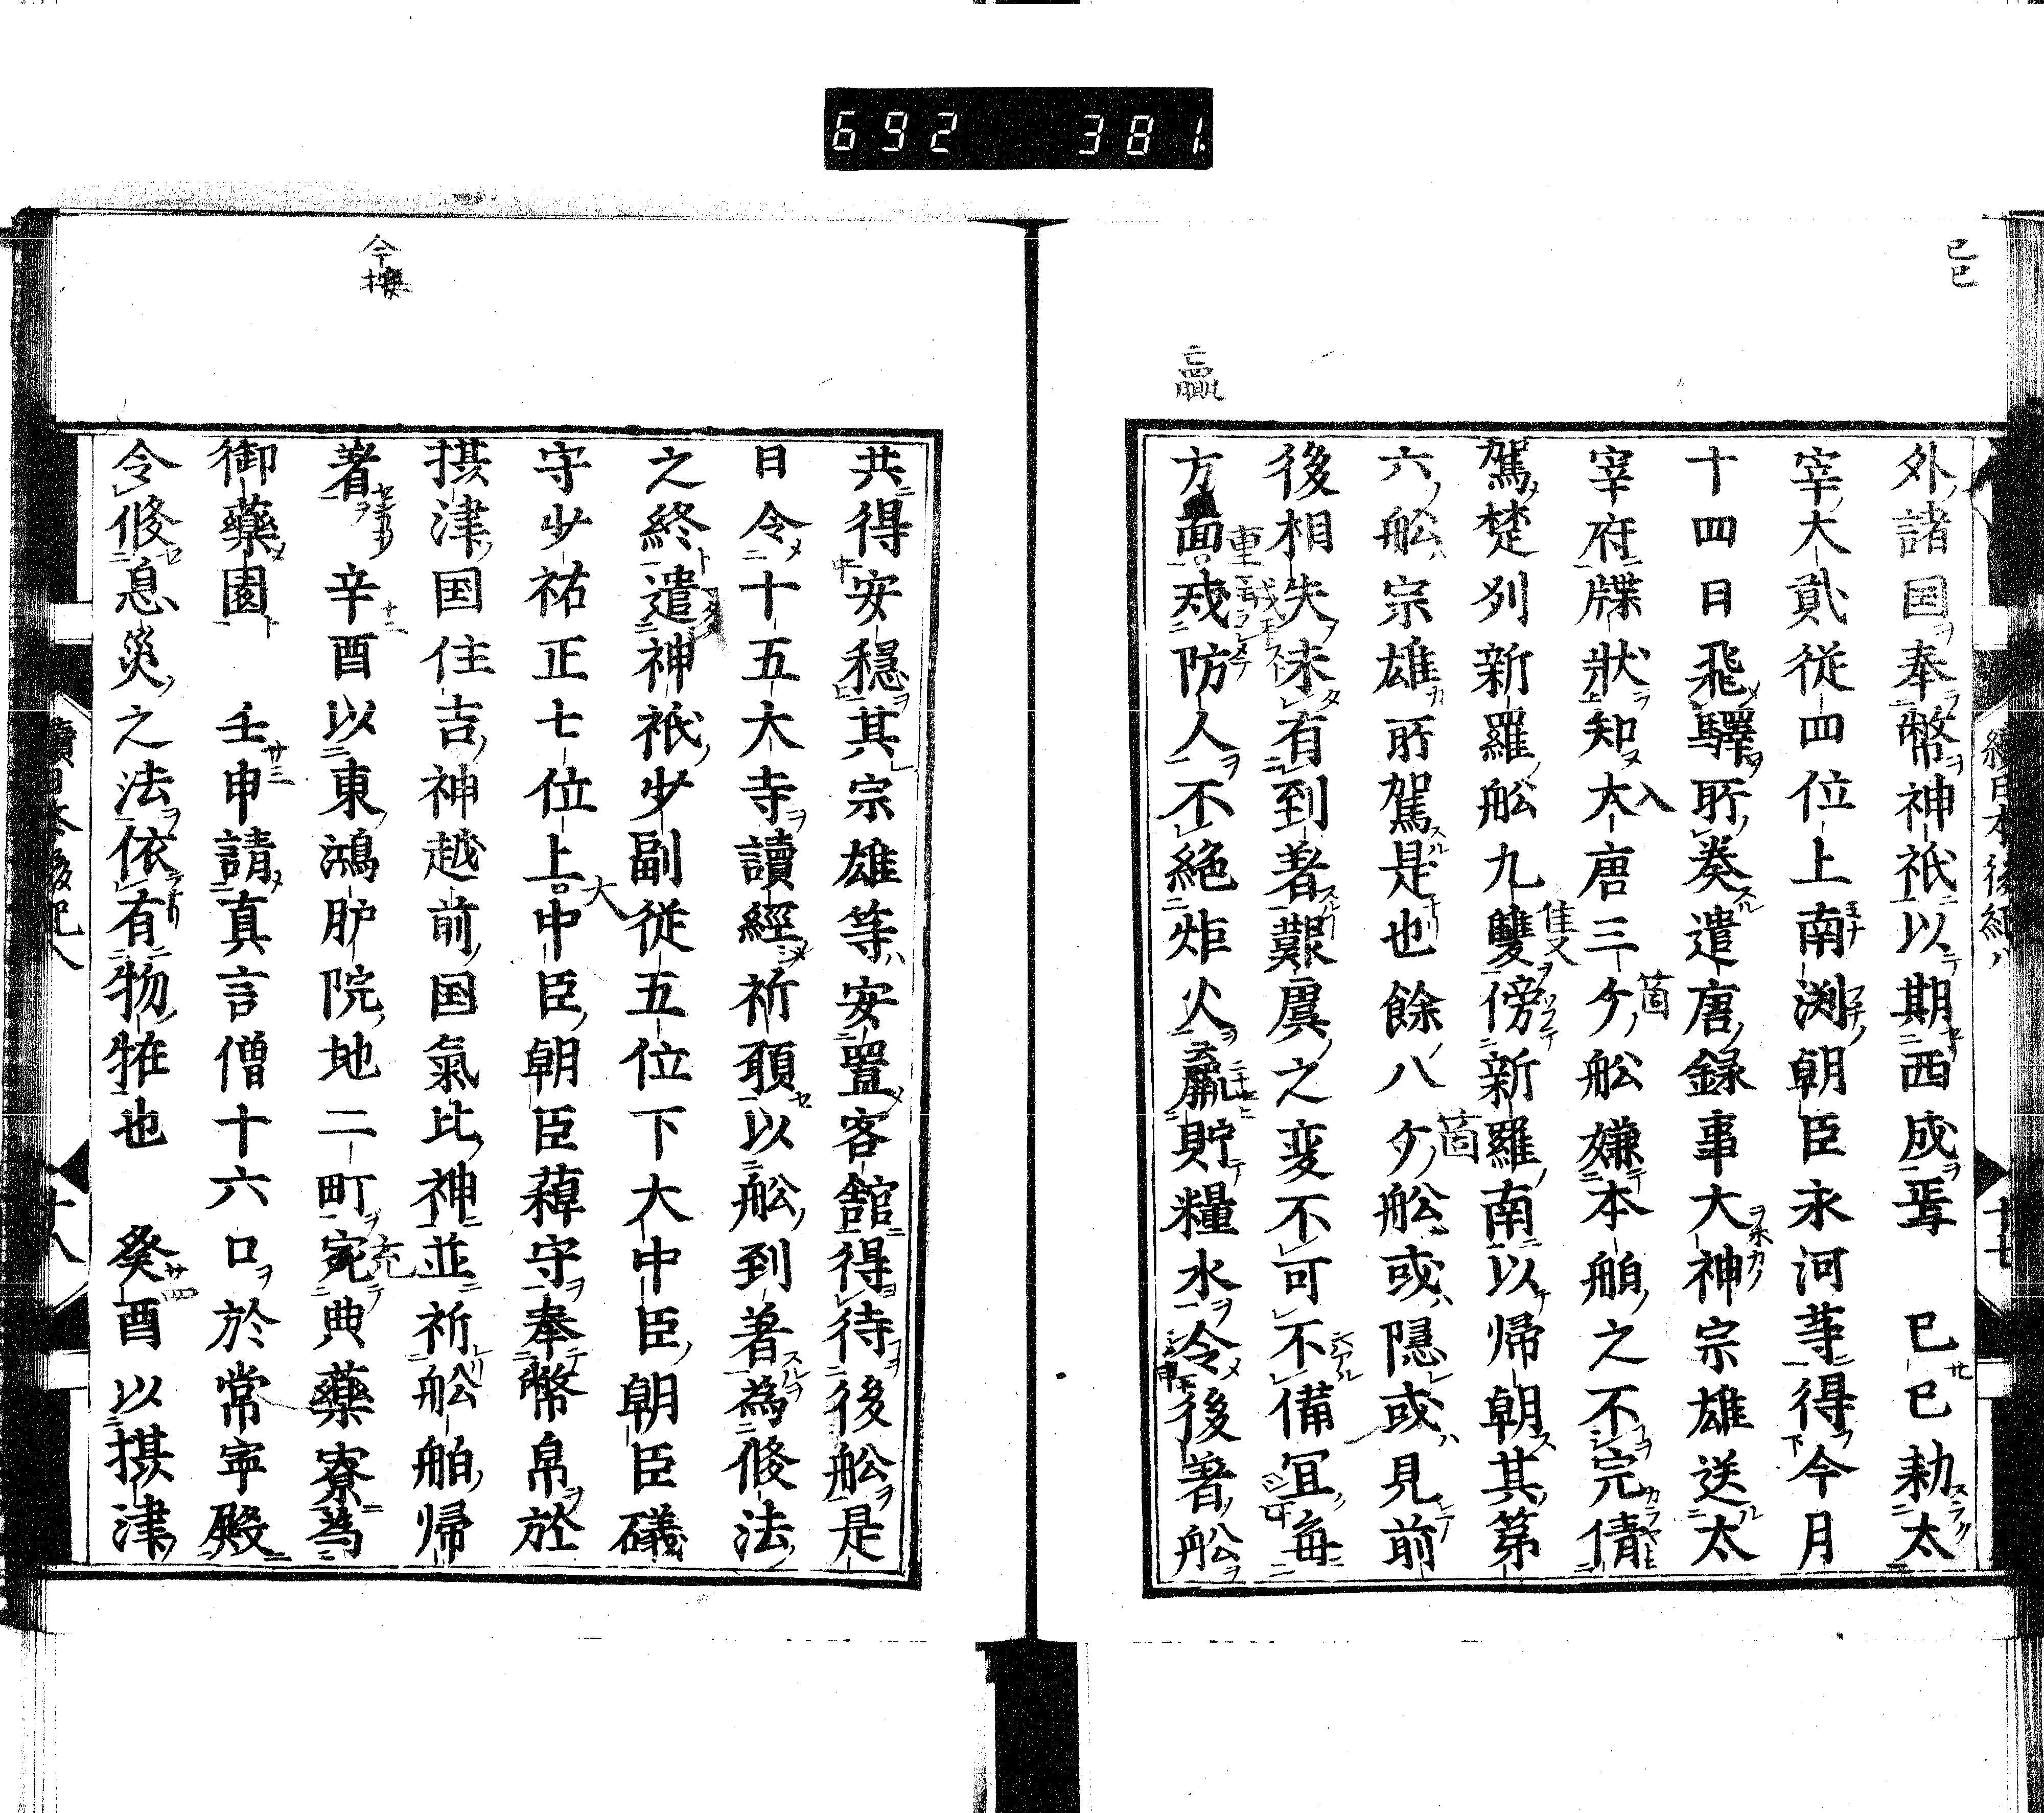 692 381
續日本後紀八
十七
己巳
外諸国奉幣神祇以期西成焉 己巳勅太
宰大貳従四位上南渕朝臣永河等得今月
十四日飛驛所奏遣唐録事大神宗雄送太
宰府牒狀知大唐三ケ舩嫌本舶之不完倩
駕楚列新羅舩九雙傍新羅南以帰朝其第
六舩宗雄所駕是也餘八ケ舩或隠或見前
後相失未有到著艱虞之変不可不備冝毎
方面戍防人不絶炬火贏貯糧水令後著舩
入
隻
箇
箇
重
贏
共得安穏其宗雄等安置客館得待後舩是
日令十五大寺讀經祈願以舩到著為修法
之終遣神祇少副従五位下大中臣朝臣礒
守少祐正七位上中臣朝臣薭守奉幣帛於
摂津国住吉神越前国氣比神並祈舩舶帰
著 辛酉以東鴻臚院地二町宛典藥寮為
御藥園 壬申請真言僧十六口於常寧殿
令修息災之法依有物恠也 癸酉以摂津
大
充
十二
廿三
廿四
今按
續日本後紀八
十八